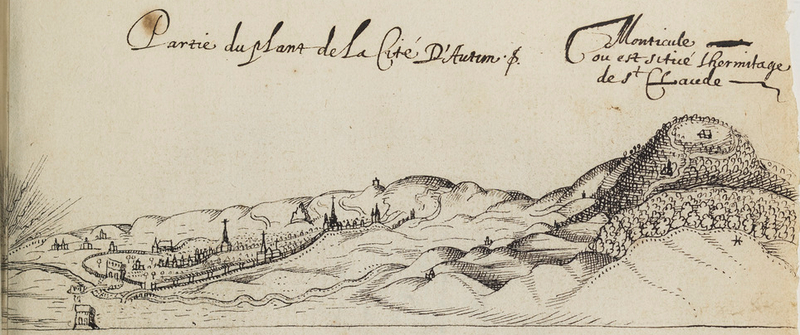 Partie du plant de la Cité D'Autun
Monticule
ou est situé Lhermitage
de St CLaude